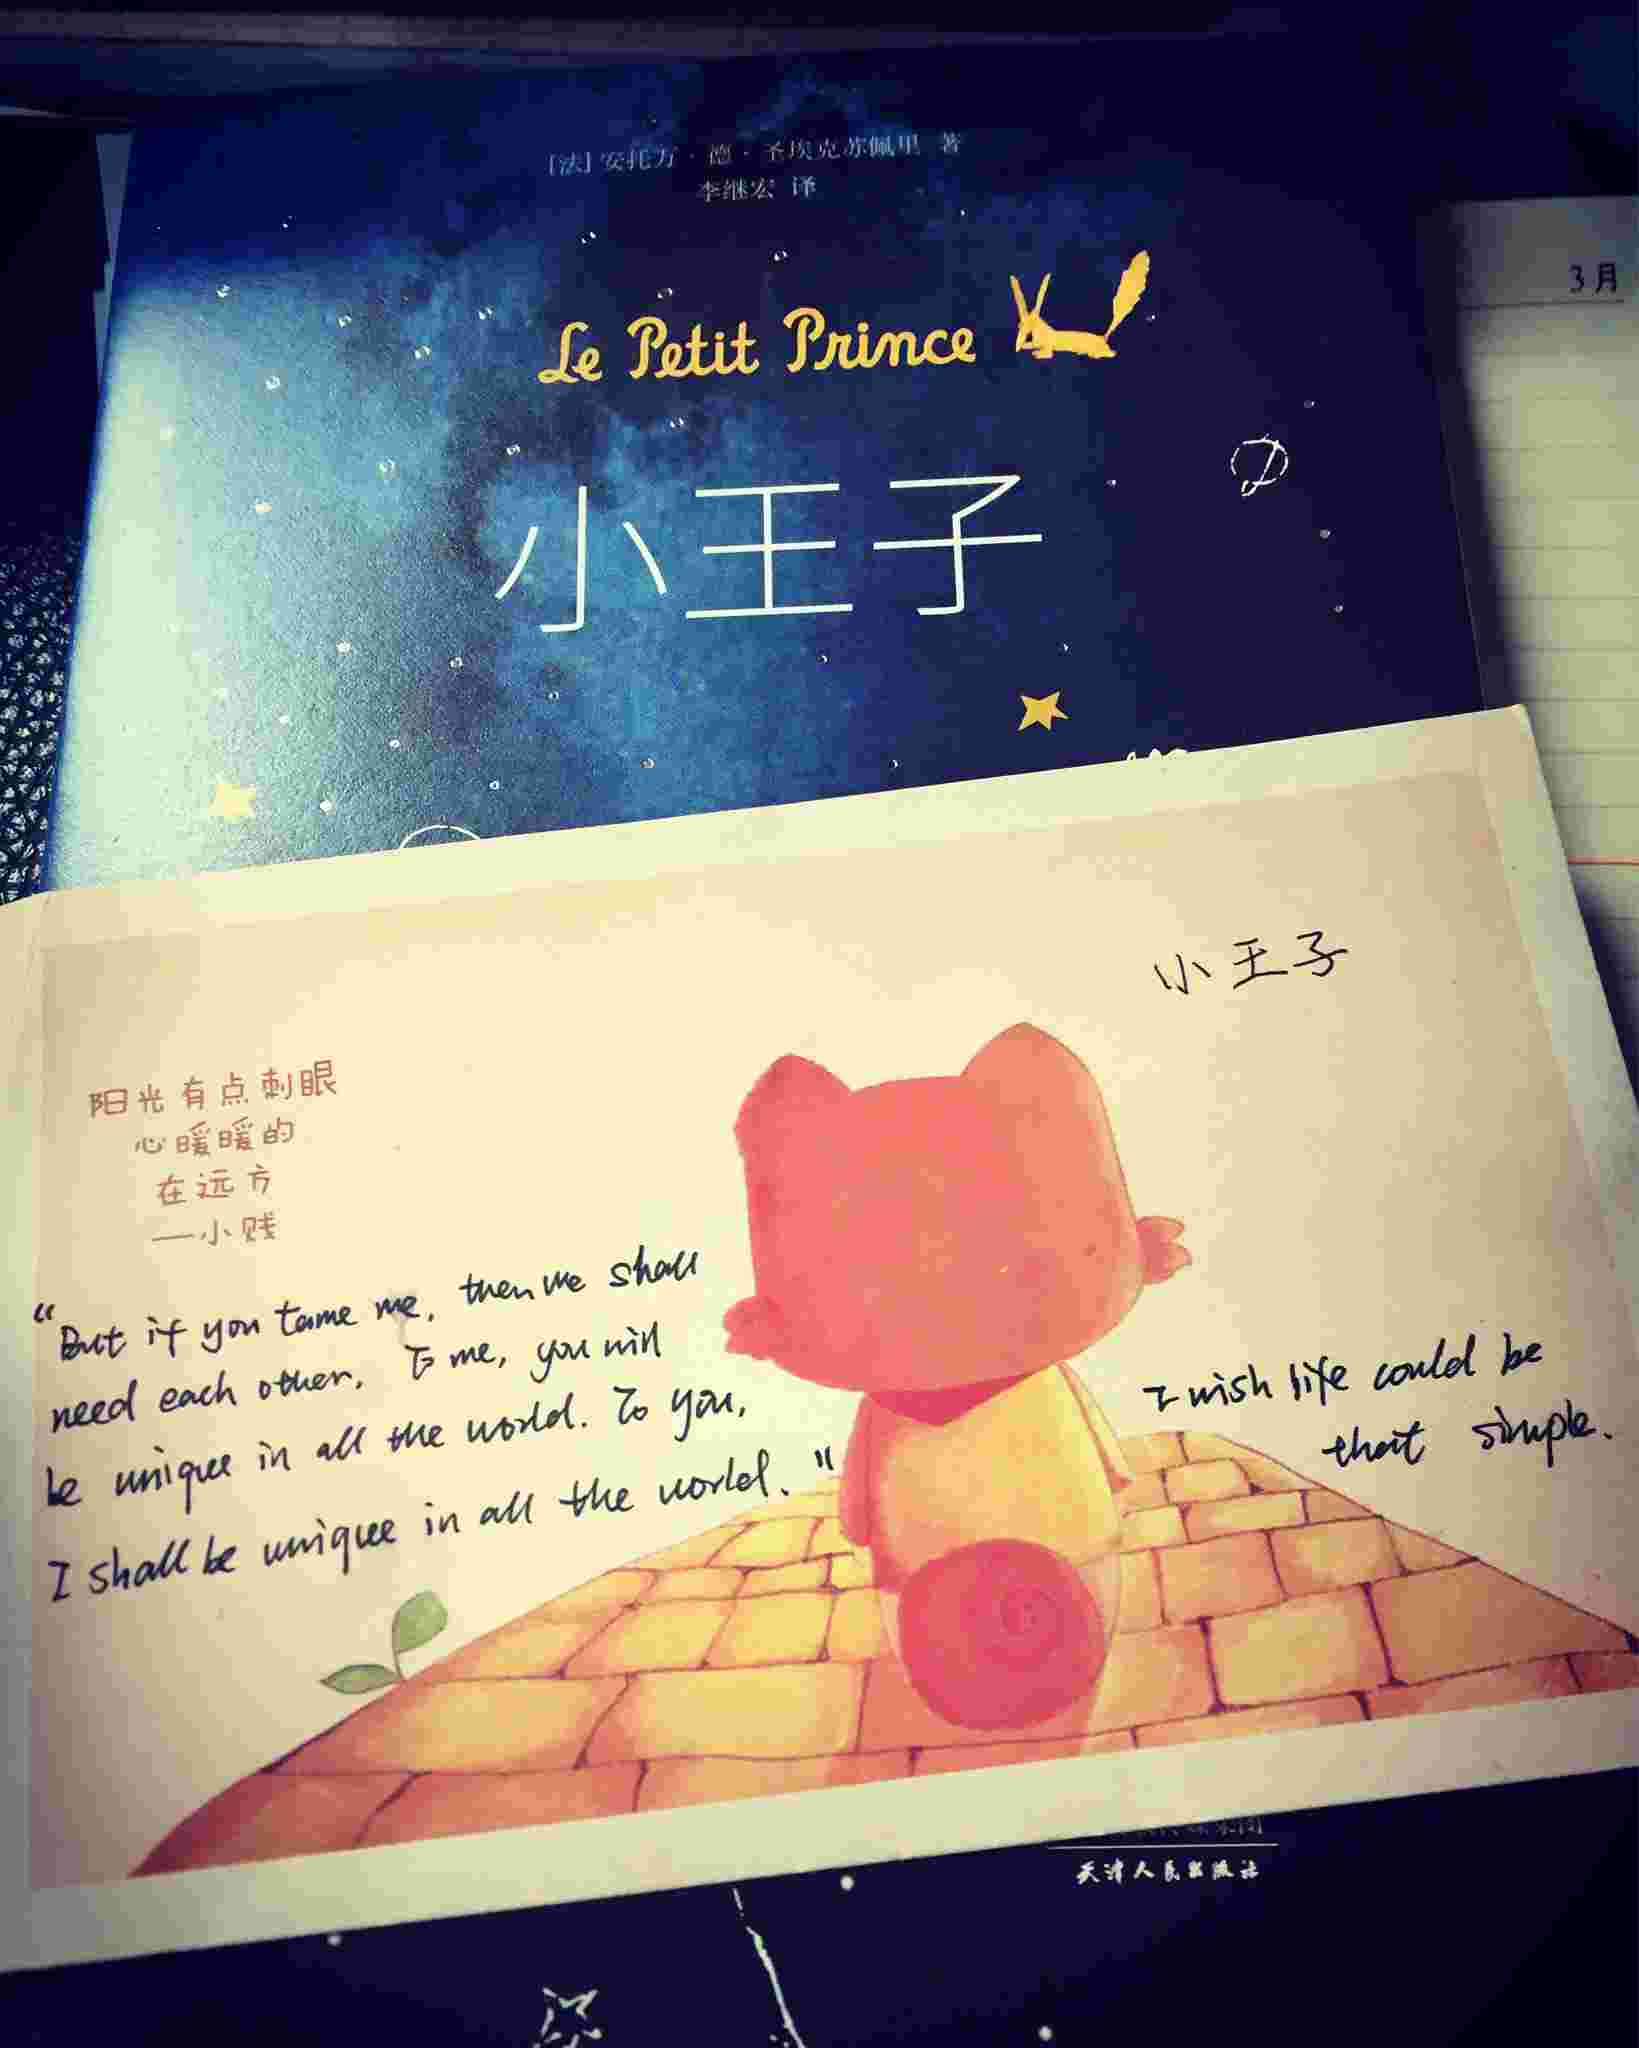 [法]安托万·德·圣埃克苏佩里 著
李继宏 译
Le Petit Prince
小王子
3月
小王子
阳光有点刺眼
心暖暖的
在远方
—小贱
"But if you tame me, then we shall
need each other. To me, you will
be unique in all the world. To you,
I shall be unique in all the world."
I wish life could be
that simple.
天津人民出版社